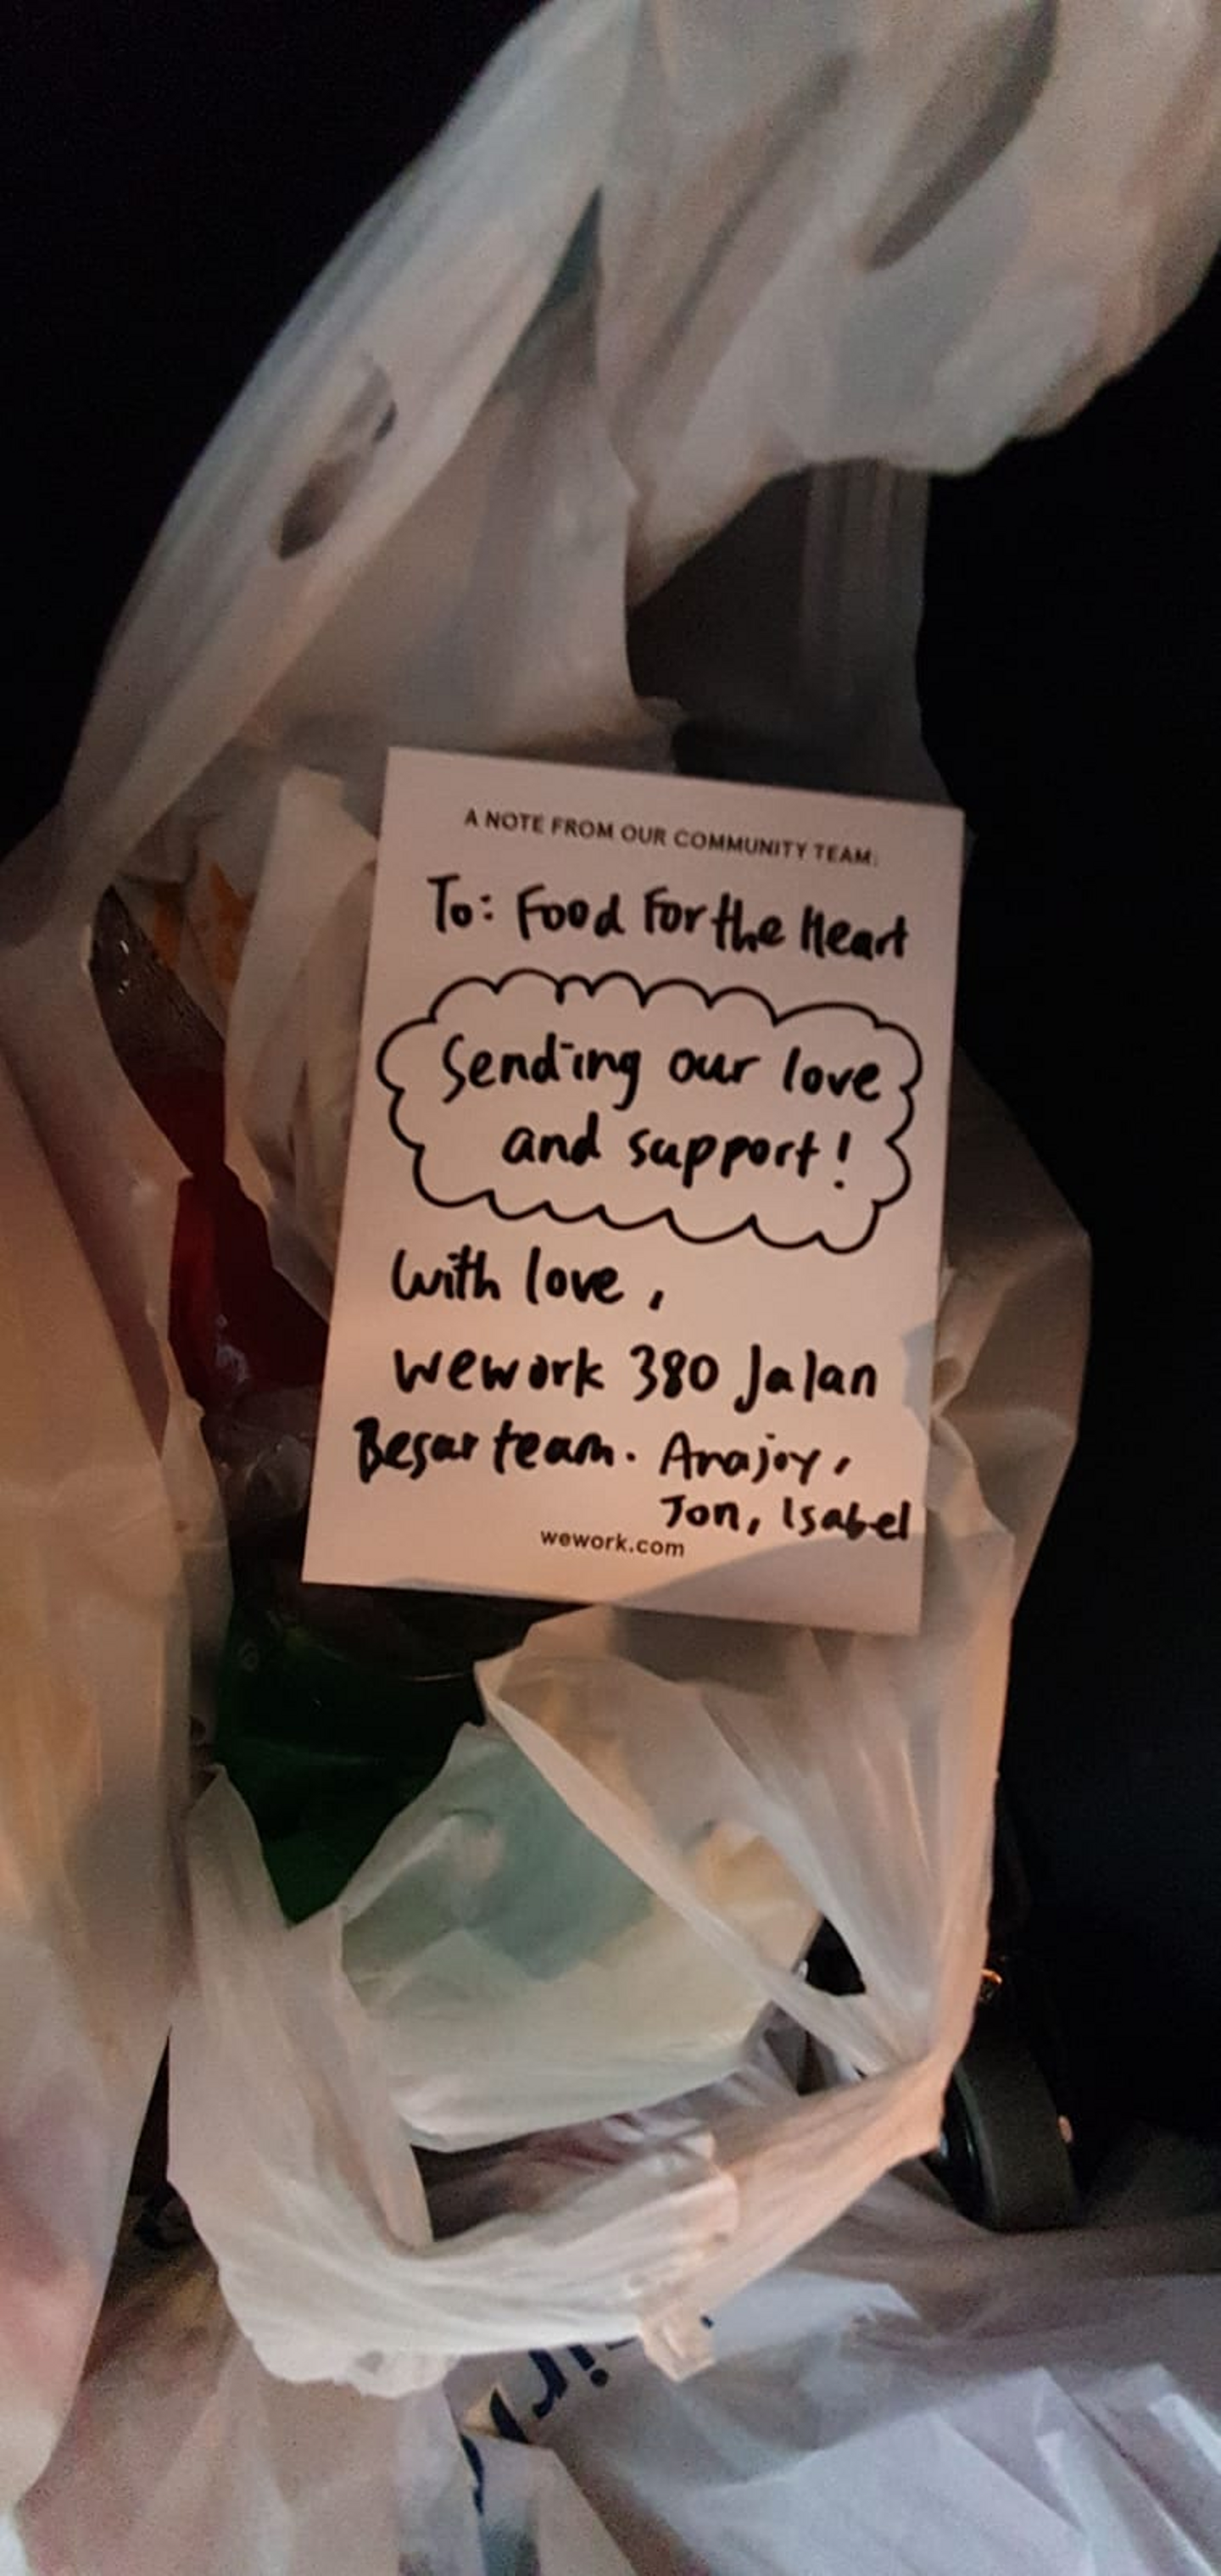 A NOTE FROM OUR COMMUNITY TEAM:
To: Food For the Heart
Sending our love
and support!
With love,
wework 380 Jalan
Besar team. Anajoy,
Jon, Isabel
wework.com